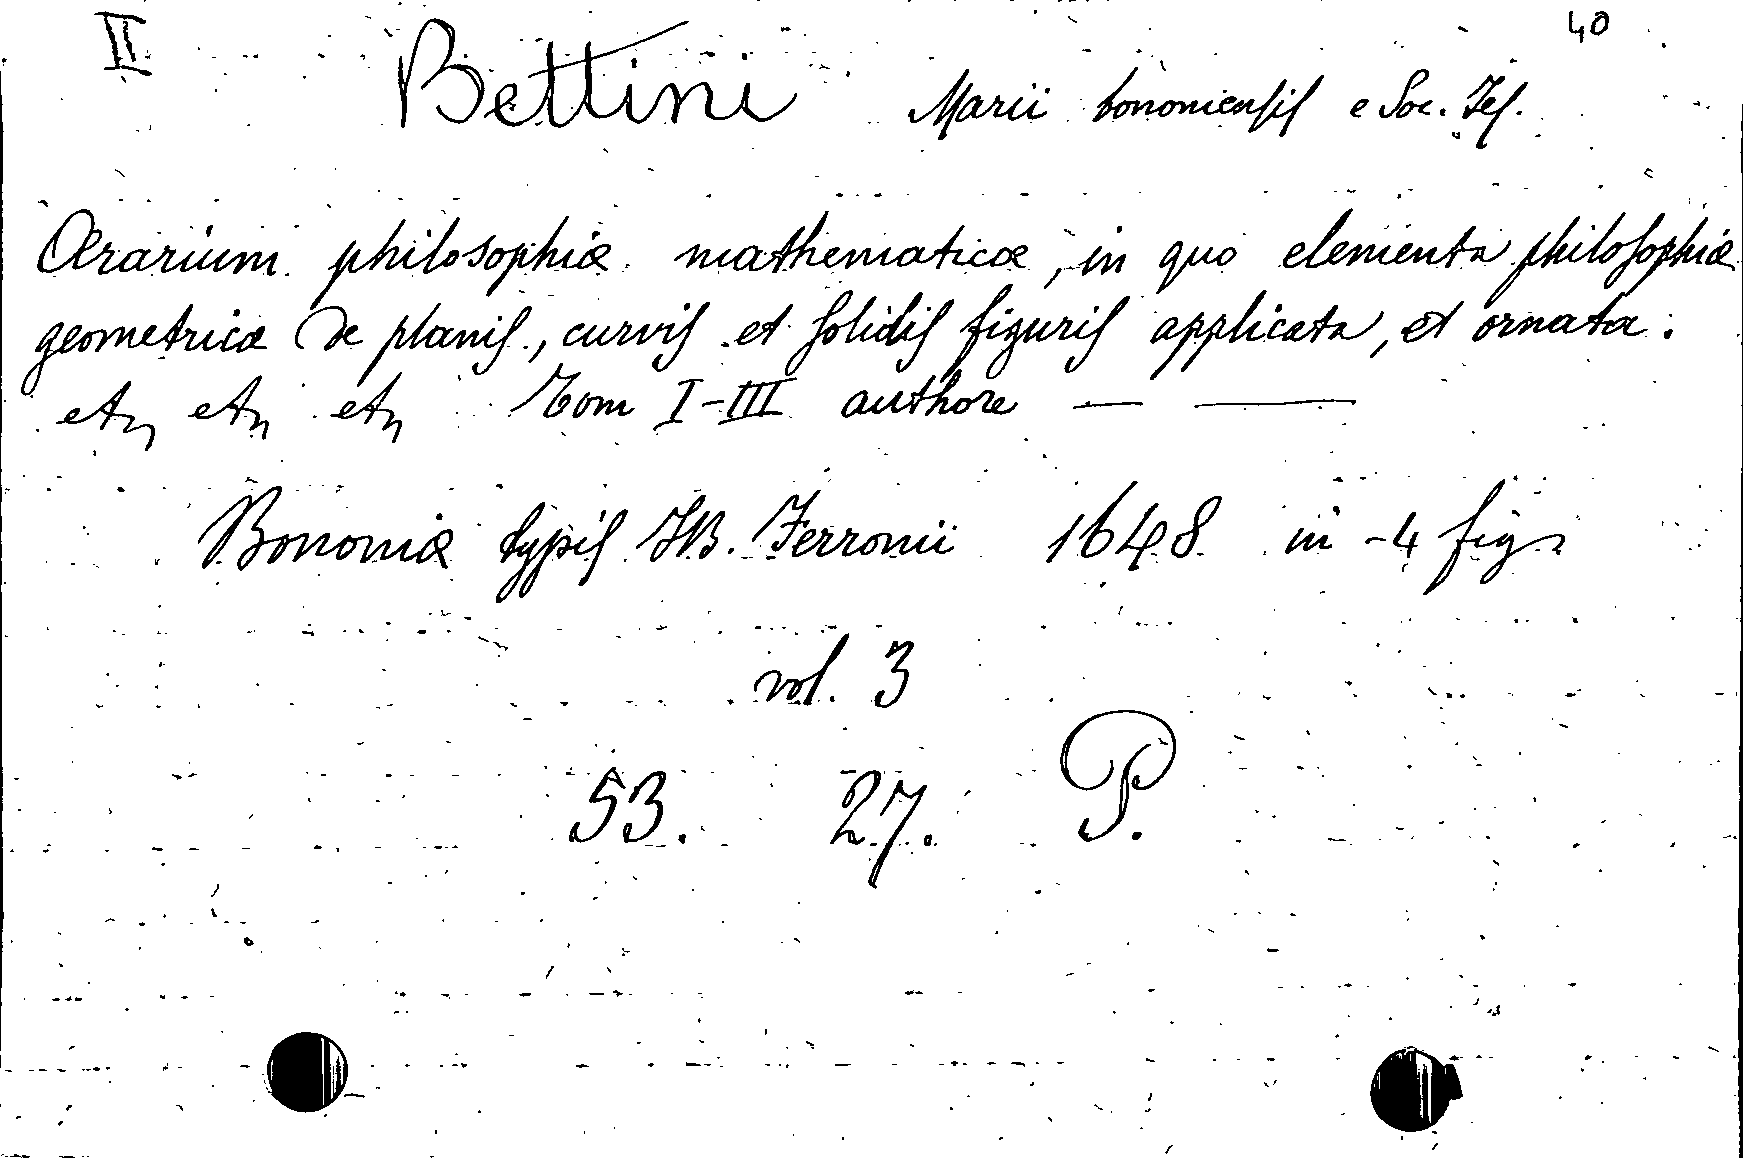 II 40
Bettini Marii bononiensis e Soc. Jes.
Ærarium philosophiæ mathematicæ, in quo elementa philosophiæ
geometricæ de planis, curvis et solidis figuris applicata, et ornata.
etc etc etc Tom I-III authore — —
Bononiæ typis JB. Ferronii 1648 in -4 fig.
vol. 3
53. 27. P.